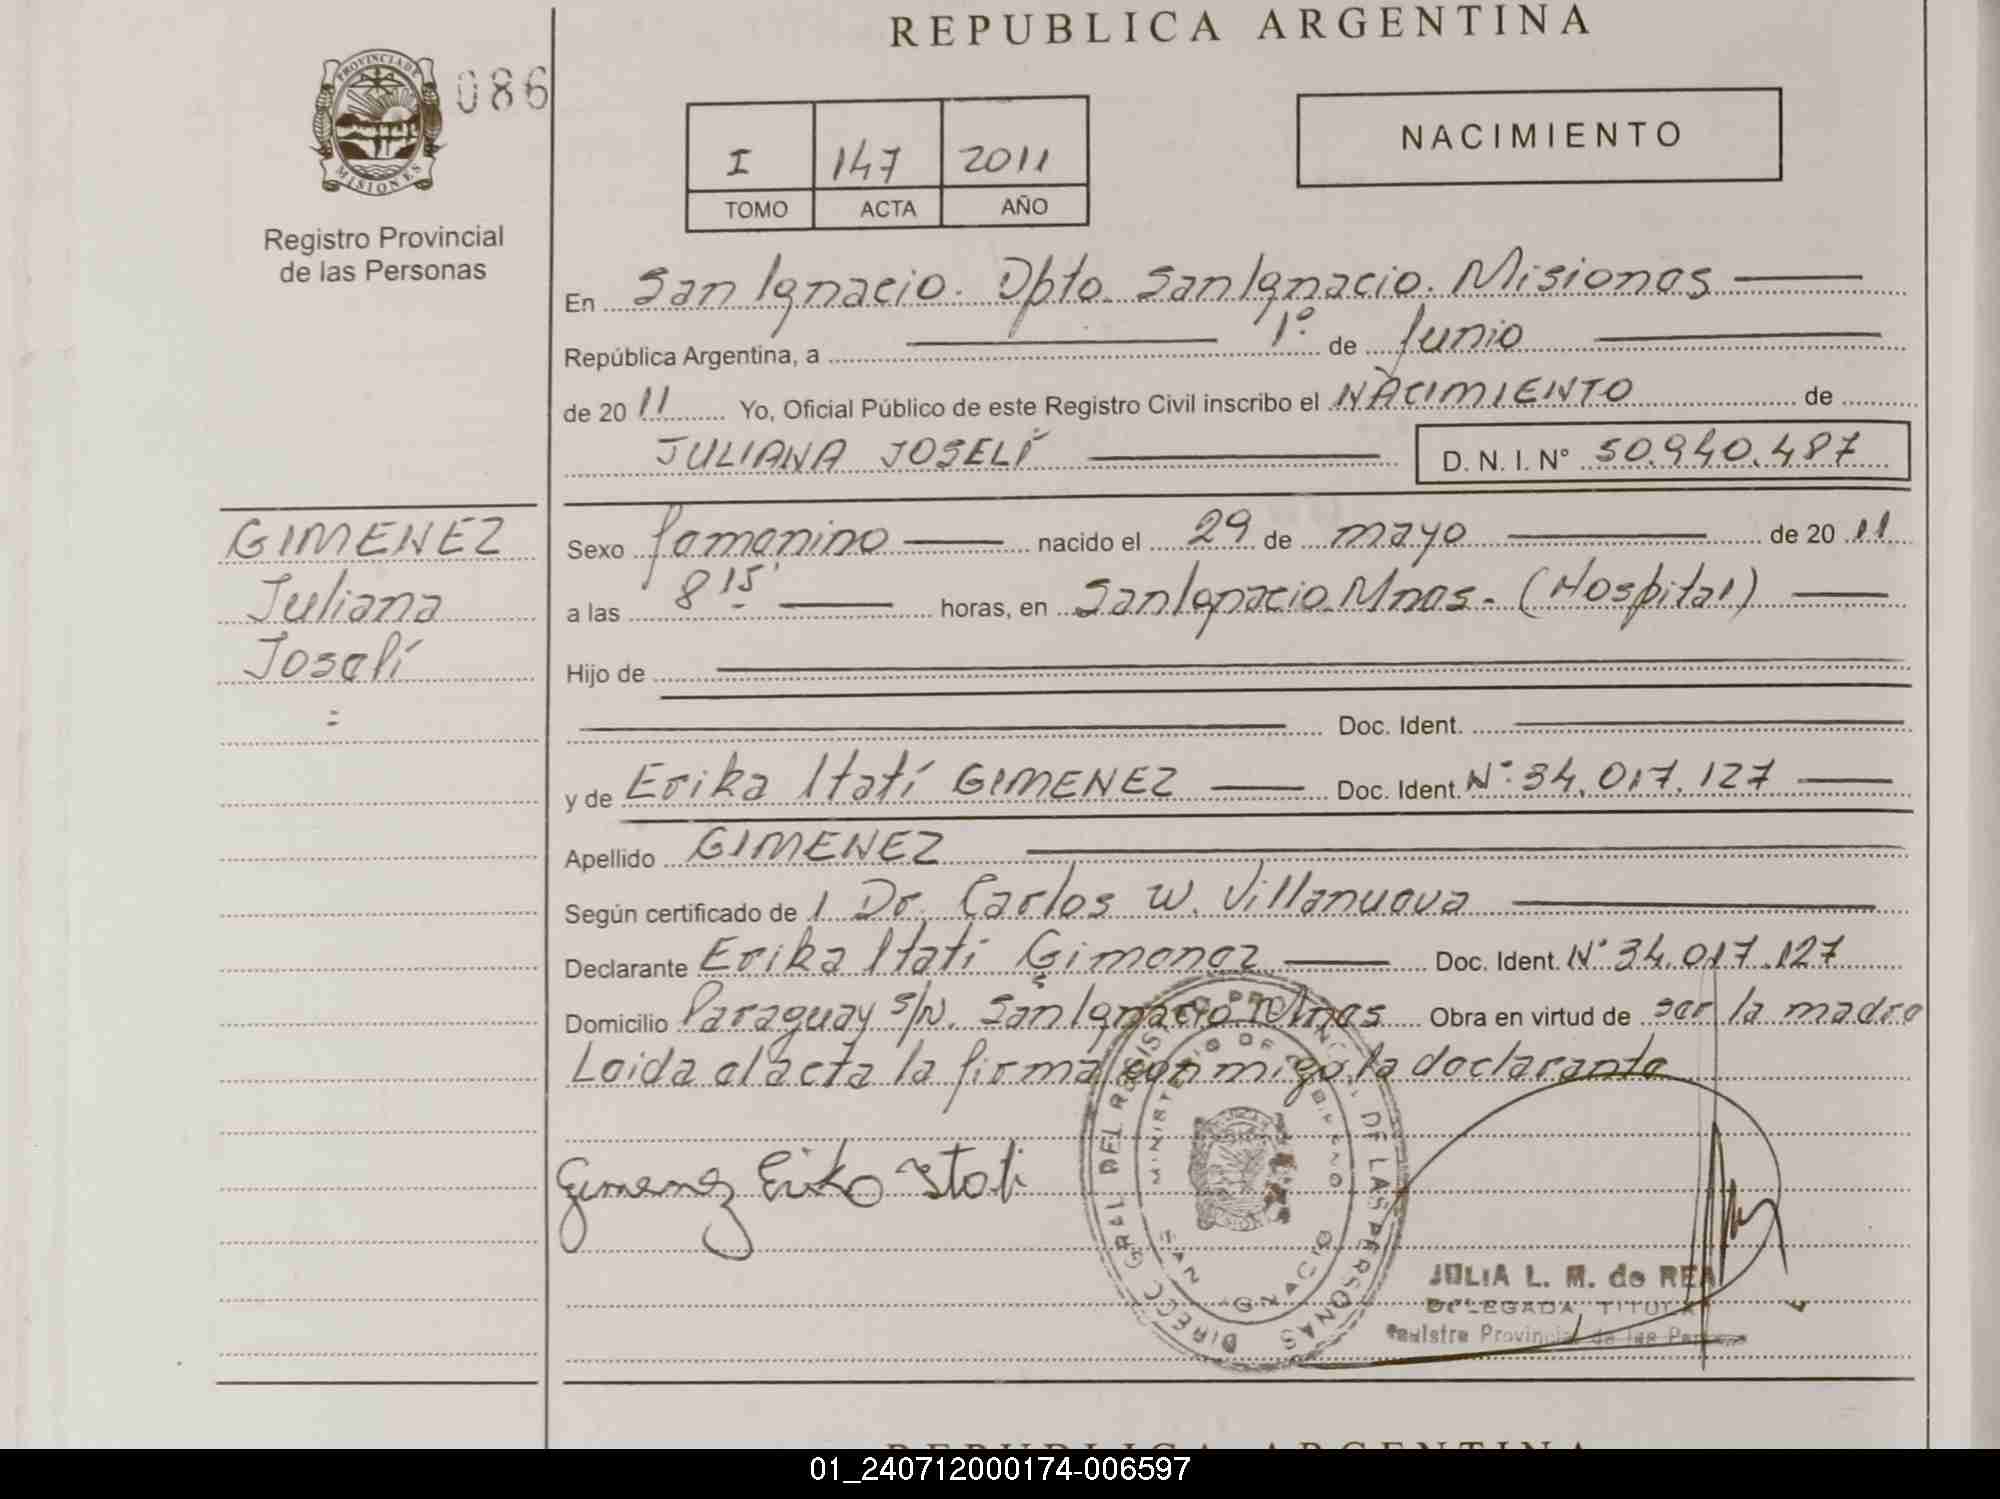 REPUBLICA ARGENTINA
PROVINCIA DE
MISIONES
086
Registro Provincial
de las Personas
I 147 2011
TOMO ACTA AÑO
NACIMIENTO
En San Ignacio. Dpto. San Ignacio. Misiones
República Argentina, a 1º de Junio
de 20 11 Yo, Oficial Público de este Registro Civil inscribo el NACIMIENTO de
JULIANA JOSELÍ D. N. I. Nº 50.940.487
GIMENEZ
Juliana
Joselí
Sexo femenino nacido el 29 de mayo de 20 11
a las 8 15' horas, en San Ignacio. Mnes. (Hospital)
Hijo de
Doc. Ident.
y de Erika Itatí GIMENEZ Doc. Ident. Nº 34.017.127
Apellido GIMENEZ
Según certificado de 1 Dr. Carlos W. Villanueva
Declarante Erika Itatí Gimenez Doc. Ident. Nº 34.017.127
Domicilio Paraguay s/N. San Ignacio Mnes Obra en virtud de ser la madre
Leida el acta la firma conmigo la declarante
Gimenez Erika Itati
DIRECC GRAL DEL REGISTRO PROVINCIAL DE LAS PERSONAS
MINISTERIO DE GOBIERNO
SAN IGNACIO
JULIA L. M. de REA
DELEGADA TITULAR
Registro Provincial de las Personas
REPUBLICA ARGENTINA
01_240712000174-006597